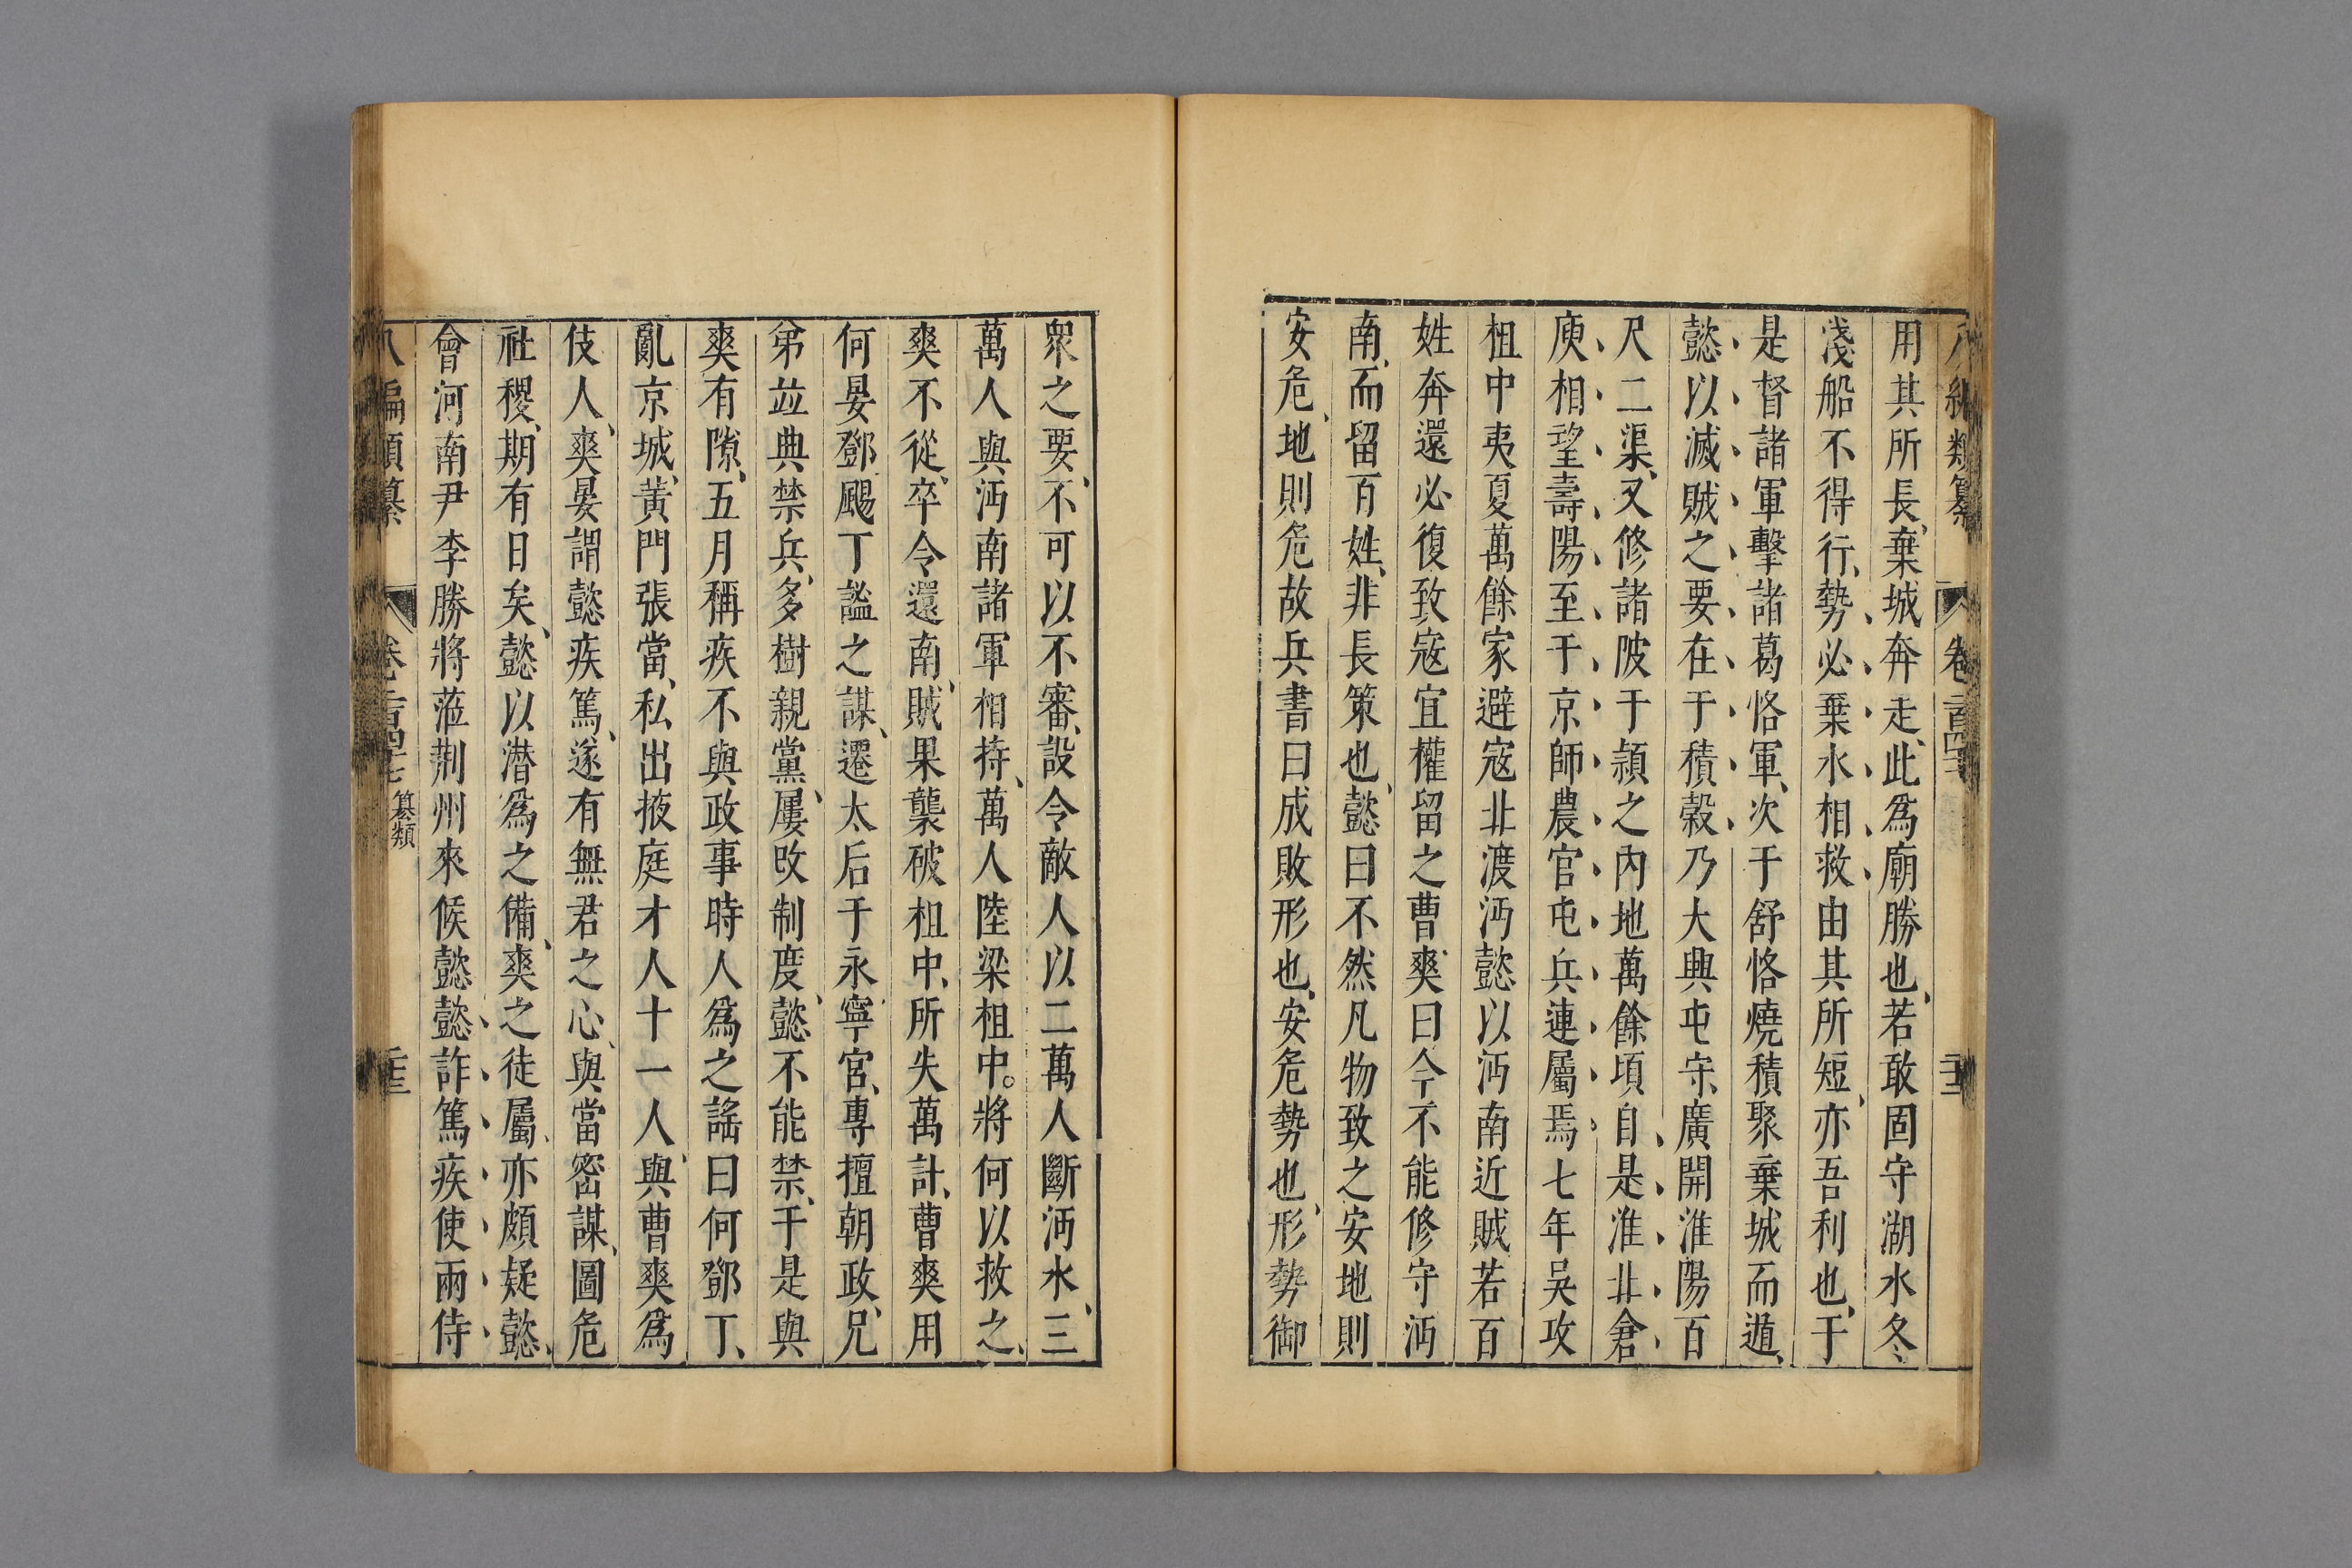 類纂
卷
用其所長、棄城奔走、此爲廟勝也、若敢固守湖水冬
淺船不得行、勢必棄水相救由其所短、亦吾利也、于
是督諸軍擊諸葛恪軍、次于舒恪燒積聚棄城而遁、
懿以滅賊之要在于積穀乃大興屯守、廣開淮陽百
尺二渠、又修諸陂于潁之內地萬餘頃自是淮北倉
庾相望壽陽至于京師農官屯兵連屬焉七年吳攻
柤中夷夏萬餘家避寇北渡沔懿以沔南近賊若百
姓奔還必復致寇宜權留之曹爽曰今不能修守沔
南、而留百姓、非長策也、懿曰不然凡物致之安地則
安危、地則危故兵書曰成敗形也、安危勢也、形勢御
衆之要、不可以不審、設令敵人以二萬人斷沔水、三
萬人與沔南諸軍相持、萬人陸梁柤中。將何以救之、
爽不從、卒令還南、賊果襲破柤中、所失萬計、曹爽用
何晏鄧颺丁謐之謀、遷太后于永寧宮、專擅朝政、兄
弟並典禁兵、多樹親黨、屢改制度、懿不能禁、于是與
爽有隙、五月稱疾不與政事時人爲之謠曰何鄧丁、
亂京城、黃門張當、私出掖庭才人十一人、與曹爽爲
伎人、爽晏謂懿疾篤、遂有無君之心、與當密謀、圖危
社稷、期有日矣、懿以潛爲之備、爽之徒屬、亦頗疑懿、
會河南尹李勝將蒞荆州來候懿懿詐篤疾使兩侍
八編類纂
卷二百四七
纂類
二十三